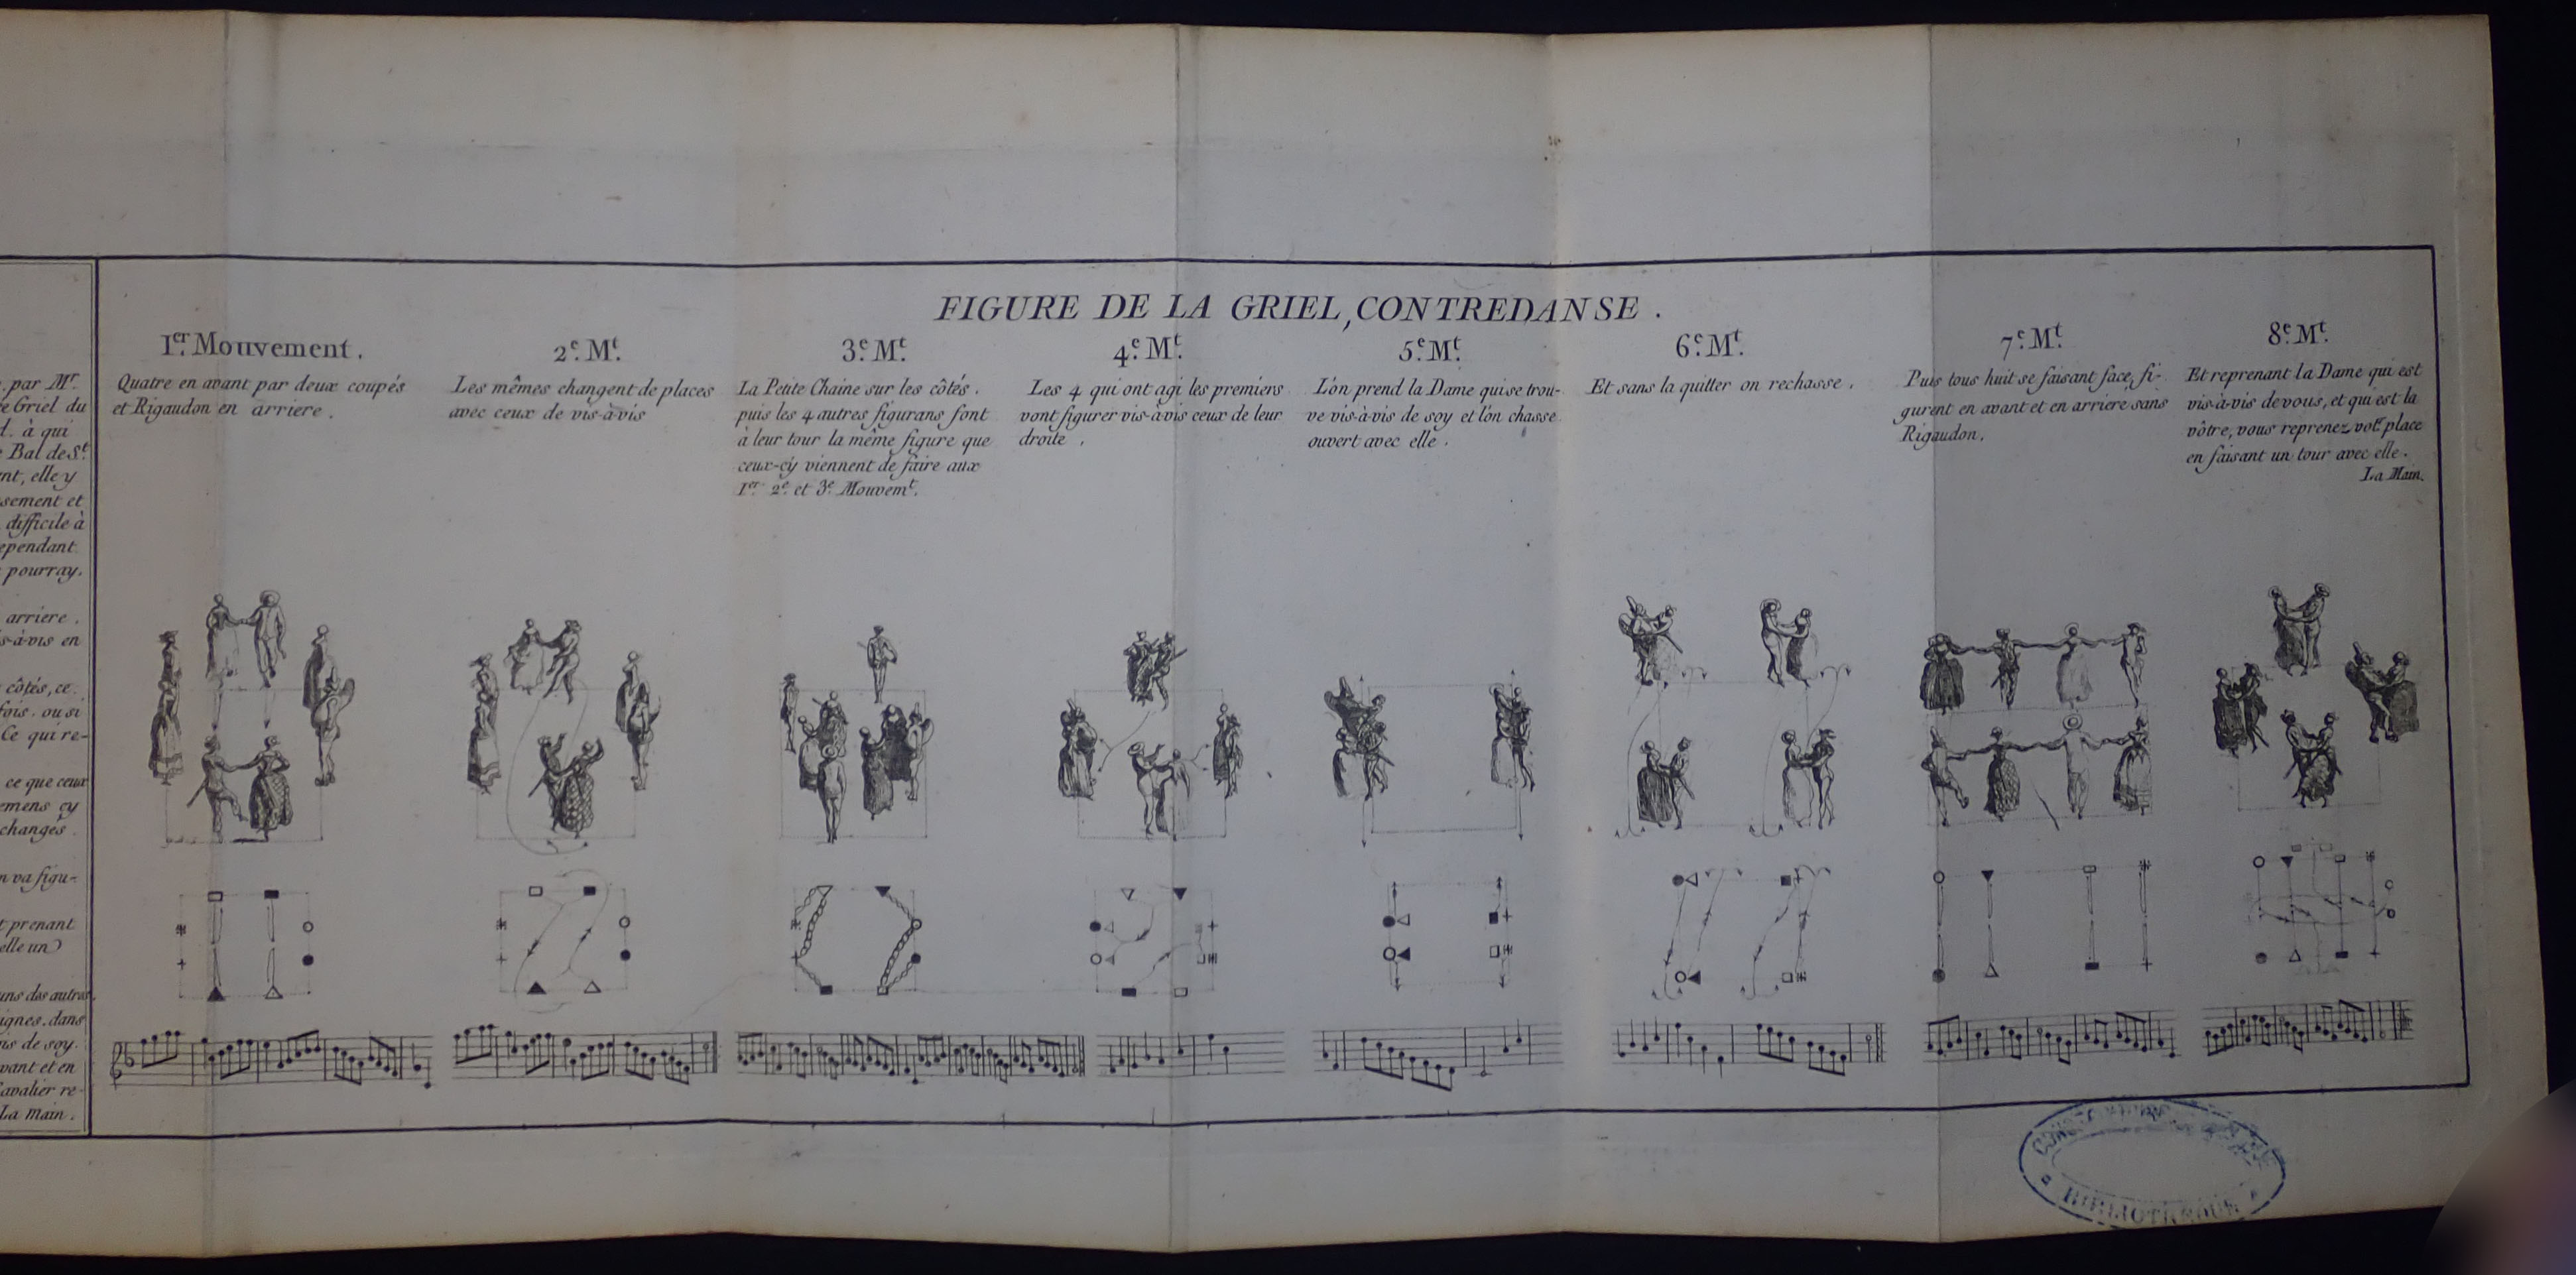 par Mr.
Griel du
à qui
Bal de St.
ent, elle y
sement et
difficile à
ependant
pourray.
arriere.
s-à-vis en
côtés, ce
fois. ou si
Ce qui re-
ce que ceux
emens cy
changés.
n va figu-
t prenant
elle un
uns des autres.
ignes. dans
vis de soy.
vant et en
avalier re-
La main.
FIGURE DE LA GRIEL, CONTREDANSE.
1er. Mouvement.
Quatre en avant par deux coupés
et Rigaudon en arriere.
2e. Mt.
Les mêmes changent de places
avec ceux de vis-à-vis
3e. Mt.
La Petite Chaine sur les côtés.
puis les 4 autres figurans font
à leur tour la même figure que
ceux-cÿ viennent de faire aux
1er. 2e. et 3e. Mouvemt.
4e. Mt.
Les 4 qui ont agi les premiers
vont figurer vis-à-vis ceux de leur
droite.
5e. Mt.
L'on prend la Dame qui se trou-
ve vis-à-vis de soy et l'on chasse
ouvert avec elle.
6e. Mt.
Et sans la quitter on rechasse.
7e. Mt.
Puis tous huit se faisant face, fi-
gurent en avant et en arriere sans
Rigaudon.
8e. Mt.
Et reprenant la Dame qui est
vis-à-vis de vous, et qui est la
vôtre, vous reprenez votre place
en faisant un tour avec elle.
La Main.
BIBLIOTHEQUE